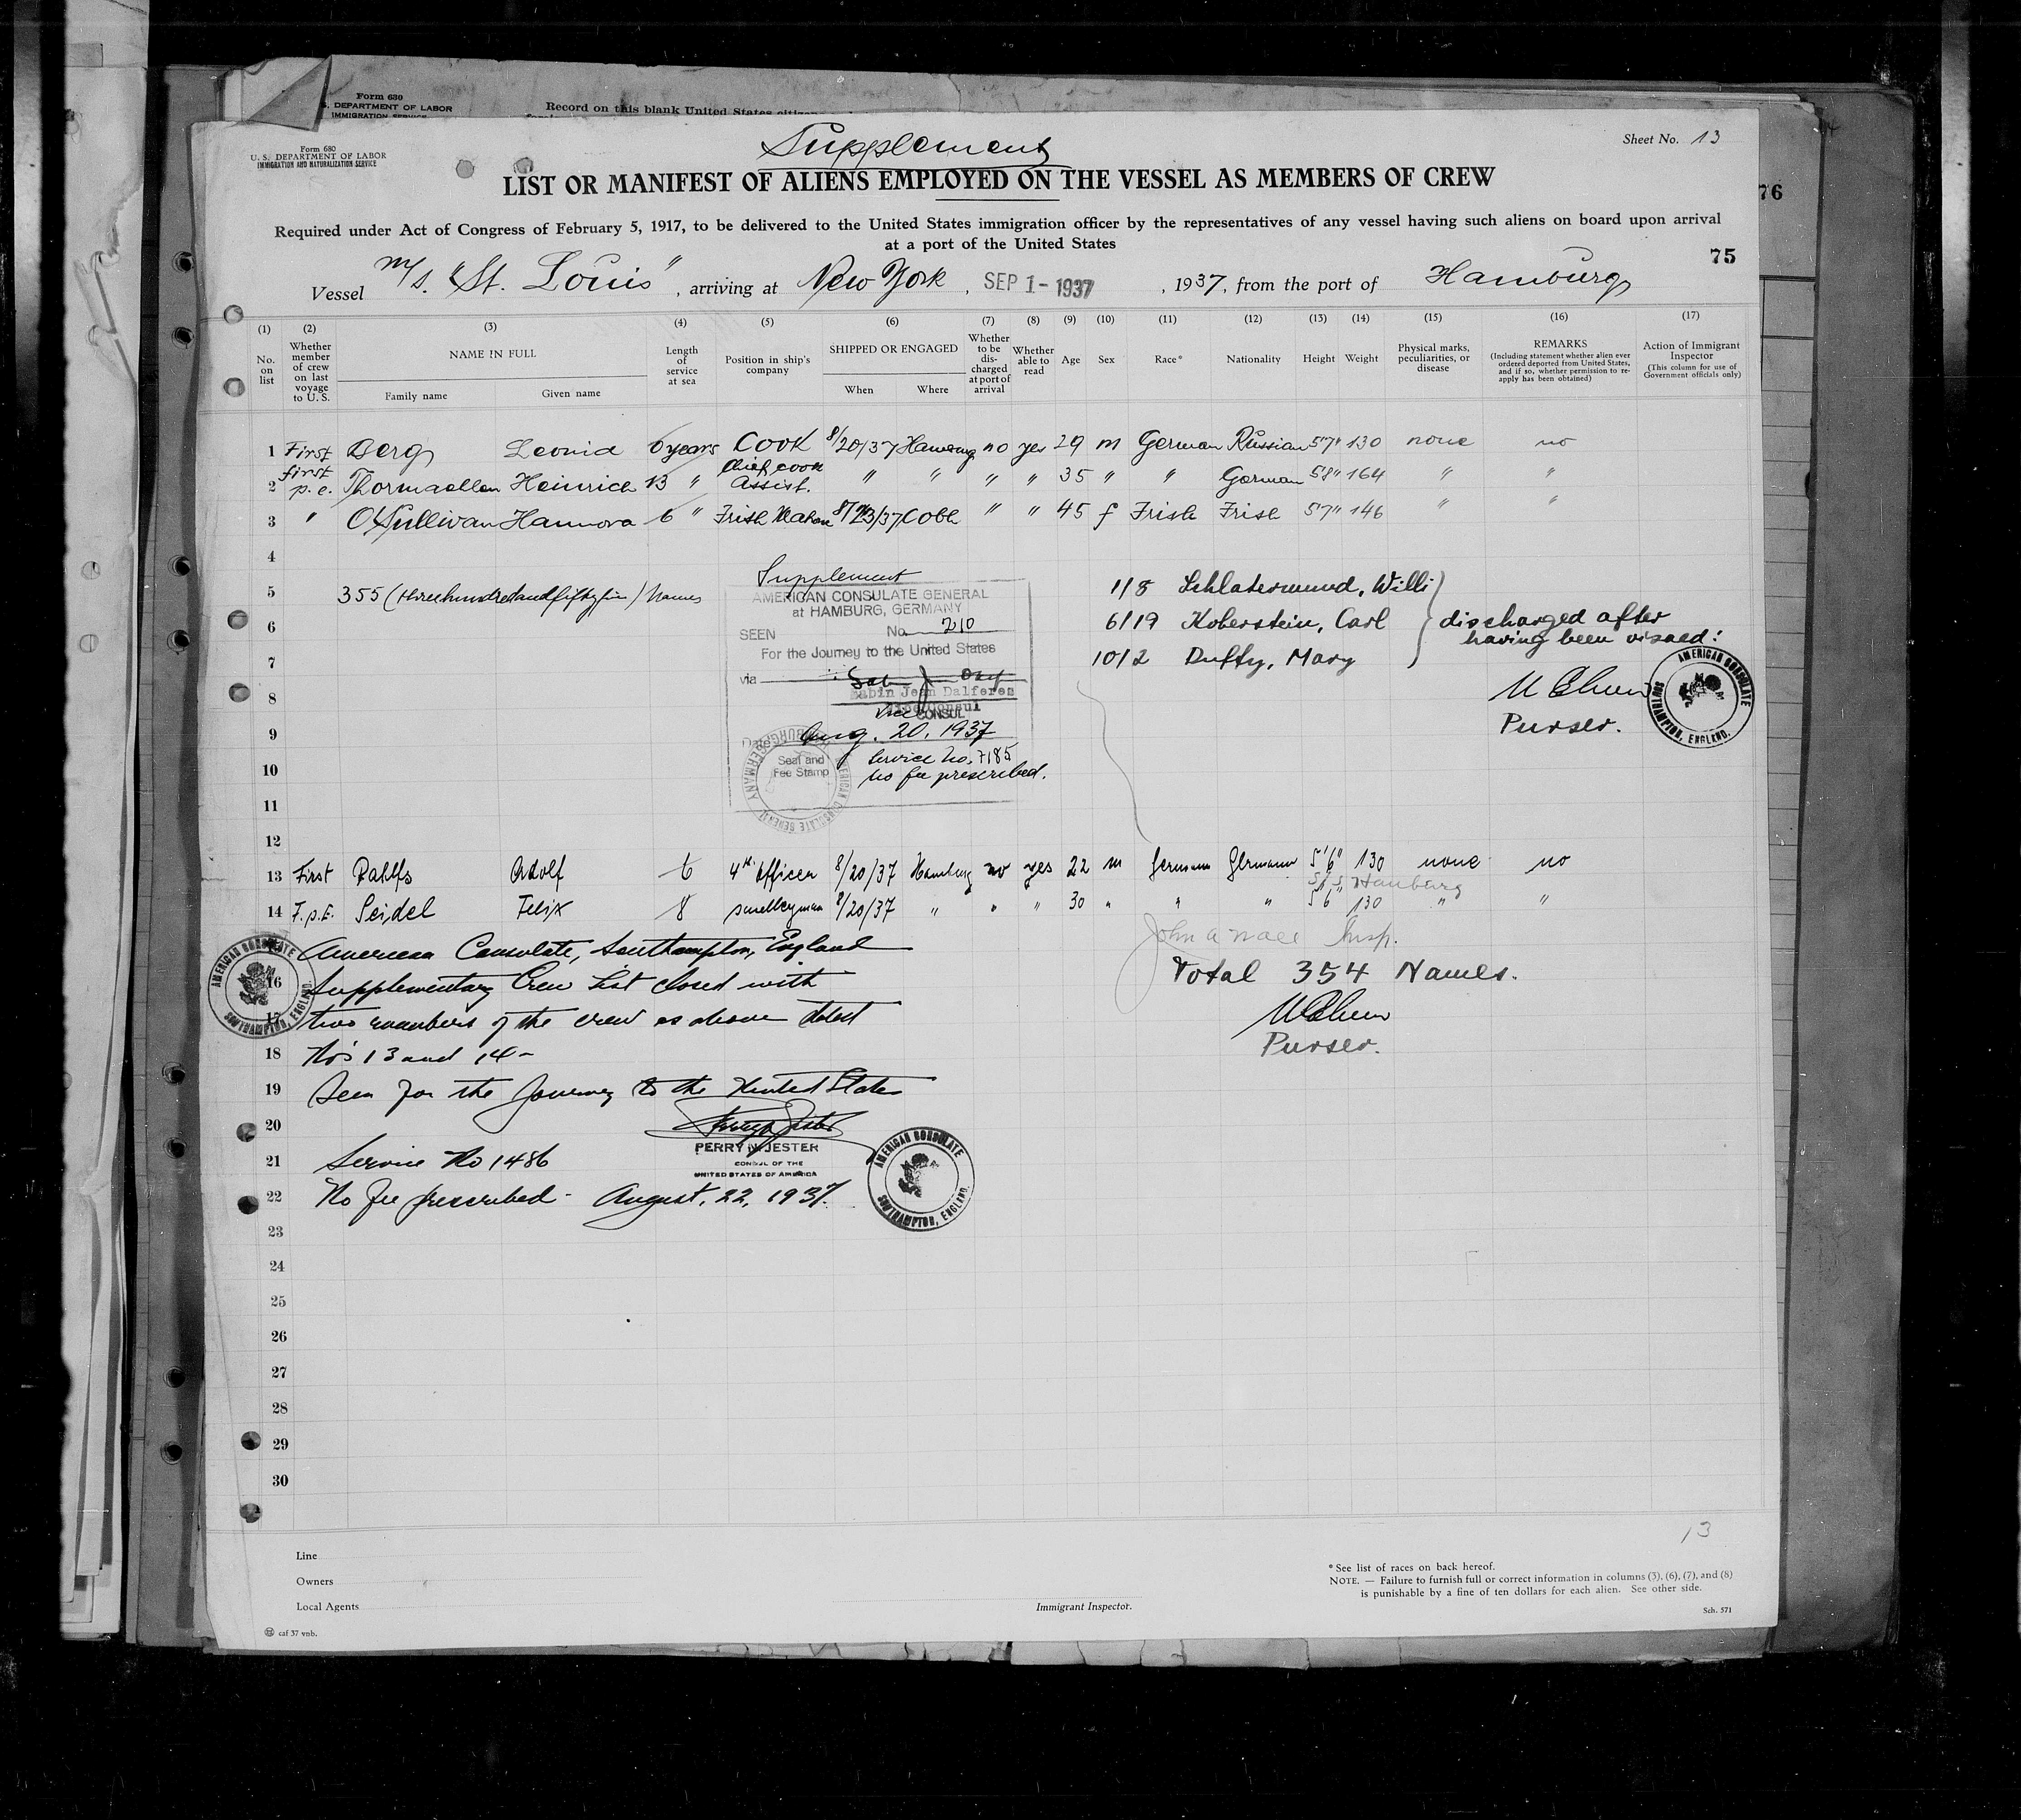 Form 680
S. DEPARTMENT OF LABOR
IMMIGRATION SERVICE
Record on this blank United States citizen
76
Form 680
U. S. DEPARTMENT OF LABOR
IMMIGRATION AND NATURALIZATION SERVICE
Supplement
Sheet No. 13
LIST OR MANIFEST OF ALIENS EMPLOYED ON THE VESSEL AS MEMBERS OF CREW
Required under Act of Congress of February 5, 1917, to be delivered to the United States immigration officer by the representatives of any vessel having such aliens on board upon arrival
at a port of the United States
75
Vessel M/S. "St. Louis", arriving at New York, SEP 1 - 1937, 1937, from the port of Hamburg
(1) (2) (3) (4) (5) (6) (7) (8) (9) (10) (11) (12) (13) (14) (15) (16) (17)
No. on list
Whether member of crew on last voyage to U. S.
NAME IN FULL
Family name Given name
Length of service at sea
Position in ship's company
SHIPPED OR ENGAGED
When Where
Whether to be discharged at port of arrival
Whether able to read
Age
Sex
Race*
Nationality
Height
Weight
Physical marks, peculiarities, or disease
REMARKS
(Including statement whether alien ever ordered deported from United States, and if so, whether permission to reapply has been obtained)
Action of Immigrant Inspector
(This column for use of Government officials only)
1 First Berg Leonid 6 years Cook 8/20/37 Hamburg no yes 29 m German Russian 5'7" 130 none no
2 first p.e. Thormaellen Heinrich 13 " Chief cook Assist. " " " " 35 " " German 5'8" 164 " "
3 " O'Sullivan Hannora 6 " Irish Matron 8/23/37 Cobh " " 45 f Irish Irish 5'7" 146 " "
4
5 355 (threehundredandfiftyfive) Names
6
7
8
9
10
11
12
Supplement
AMERICAN CONSULATE GENERAL
at HAMBURG, GERMANY
SEEN No. 210
For the Journey to the United States
via
Sabin Jean Dalferes
Vice Consul
Vice CONSUL
Aug. 20, 1937
Seal and
Fee Stamp
Service No. 7185
No fee prescribed.
AMERICAN CONSULATE GENERAL HAMBURG GERMANY
1/8 Schlatermund, Willi
6/19 Koberstein, Carl
10/2 Duffy, Mary
discharged after
having been visaed!
Purser.
AMERICAN CONSULATE
SOUTHAMPTON, ENGLAND.
13 First Rahlfs Adolf 6 4th Officer 8/20/37 Hamburg no yes 22 m German German 5'6" 130 none no
S/S Hamburg
14 F.p.E. Seidel Felix 8 8/20/37 " " " 30 " " " 5'6" 130 " "
American Consulate, Southampton, England
16 Supplementary Crew List closed with
17 two members of the crew as above listed
18 No's 13 and 14-
19 Seen for the Journey to the United States
20
PERRY N. JESTER
CONSUL OF THE
UNITED STATES OF AMERICA
21 Service No 1486
22 No fee prescribed - August, 22, 1937.
AMERICAN CONSULATE
SOUTHAMPTON, ENGLAND.
AMERICAN CONSULATE
SOUTHAMPTON, ENGLAND.
Insp.
Total 354 Names.
Purser.
23
24
25
26
27
28
29
30
13
Line
Owners
Local Agents
Immigrant Inspector.
* See list of races on back hereof.
NOTE. — Failure to furnish full or correct information in columns (3), (6), (7), and (8)
is punishable by a fine of ten dollars for each alien. See other side.
Sch. 571
caf 37 vnb.